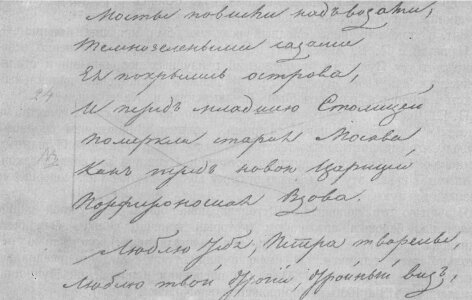 Мосты повисли надъ водами;
Темнозелеными садами
Ея покрылись острова,
И передъ младшею Столицей
Померкла старая Москва
Какъ передъ новою Царицей
Порфироносная Вдова.
Люблю тебя, Петра творенье,
Люблю твой строгій, стройный видъ,